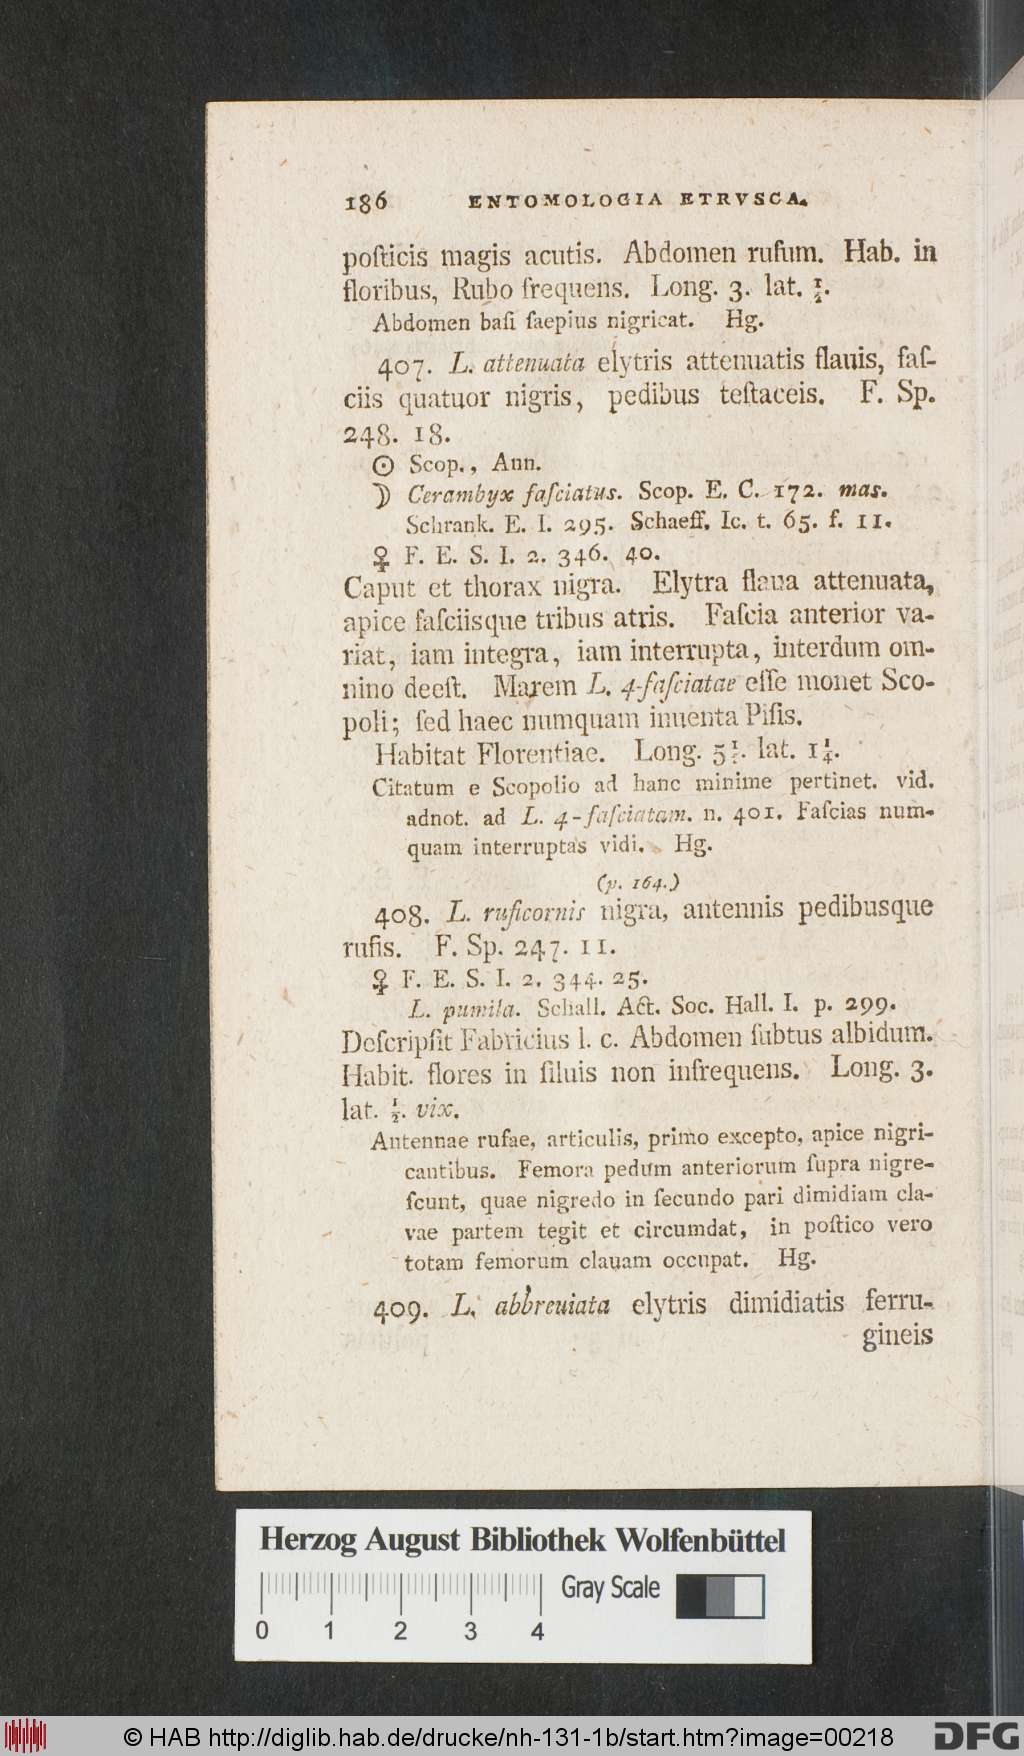 186 ENTOMOLOGIA ETRVSCA.
poſticis magis acutis. Abdomen rufum. Hab. in
floribus, Rubo frequens. Long. 3. lat. ½.
Abdomen baſi ſaepius nigricat. Hg.
407. L. attenuata elytris attenuatis flauis, faſ-
ciis quatuor nigris, pedibus teſtaceis. F. Sp.
248. 18.
☉ Scop., Ann.
☽ Cerambyx faſciatus. Scop. E. C. 172. mas.
Schrank. E. I. 295. Schaeff. Ic. t. 65. f. 11.
F. E. S. I. 2. 346. 40.
Caput et thorax nigra. Elytra flaua attenuata,
apice faſciisque tribus atris. Faſcia anterior va-
riat, iam integra, iam interrupta, interdum om-
nino deeſt. Marem L. 4-faſciatae eſſe monet Sco-
poli; ſed haec numquam inuenta Piſis.
Habitat Florentiae. Long. 5½. lat. 1¼.
Citatum e Scopolio ad hanc minime pertinet. vid.
adnot. ad L. 4-faſciatam. n. 401. Faſcias num-
quam interruptas vidi. Hg.
(p. 164.)
408. L. ruficornis nigra, antennis pedibusque
rufis. F. Sp. 247. 11.
F. E. S. I. 2. 344. 25.
L. pumila. Schall. Act. Soc. Hall. I. p. 299.
Deſcripſit Fabricius l. c. Abdomen ſubtus albidum.
Habit. flores in ſiluis non infrequens. Long. 3.
lat. ½. vix.
Antennae rufae, articulis, primo excepto, apice nigri-
cantibus. Femora pedum anteriorum ſupra nigre-
ſcunt, quae nigredo in ſecundo pari dimidiam cla-
vae partem tegit et circumdat, in poſtico vero
totam femorum clauam occupat. Hg.
409. L. abbreuiata elytris dimidiatis ferru-
gineis
Herzog August Bibliothek Wolfenbüttel
Gray Scale
0 1 2 3 4
© HAB http://diglib.hab.de/drucke/nh-131-1b/start.htm?image=00218
DFG